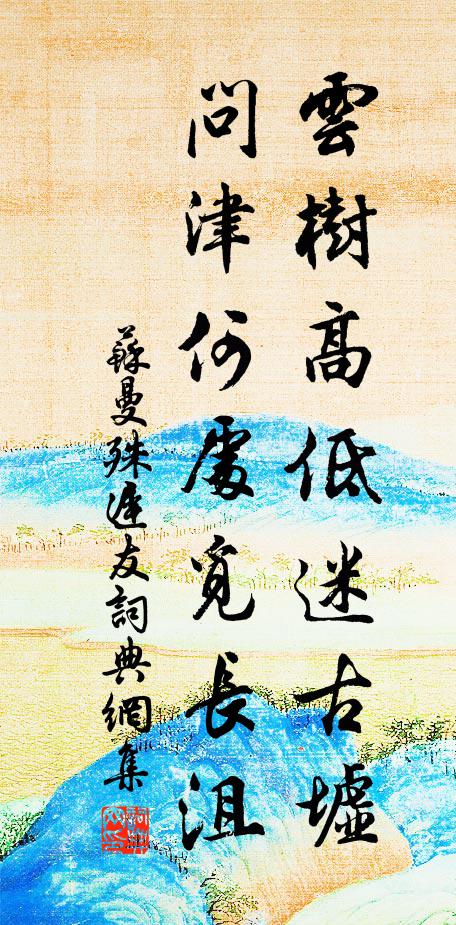 雲樹高低迷古墟
問津何處覓長沮
蘇曼殊遲友詞典網集